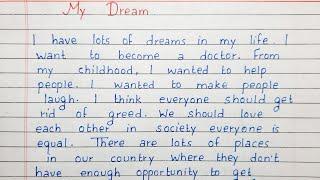 My Dream
I have lots of dreams in my life. I
want to become a doctor. From
my childhood, I wanted to help
people. I wanted to make people
laugh. I think everyone should get
rid of greed. We should love
each other in society everyone is
equal. There are lots of places
in our country where they don't
have enough opportunity to get